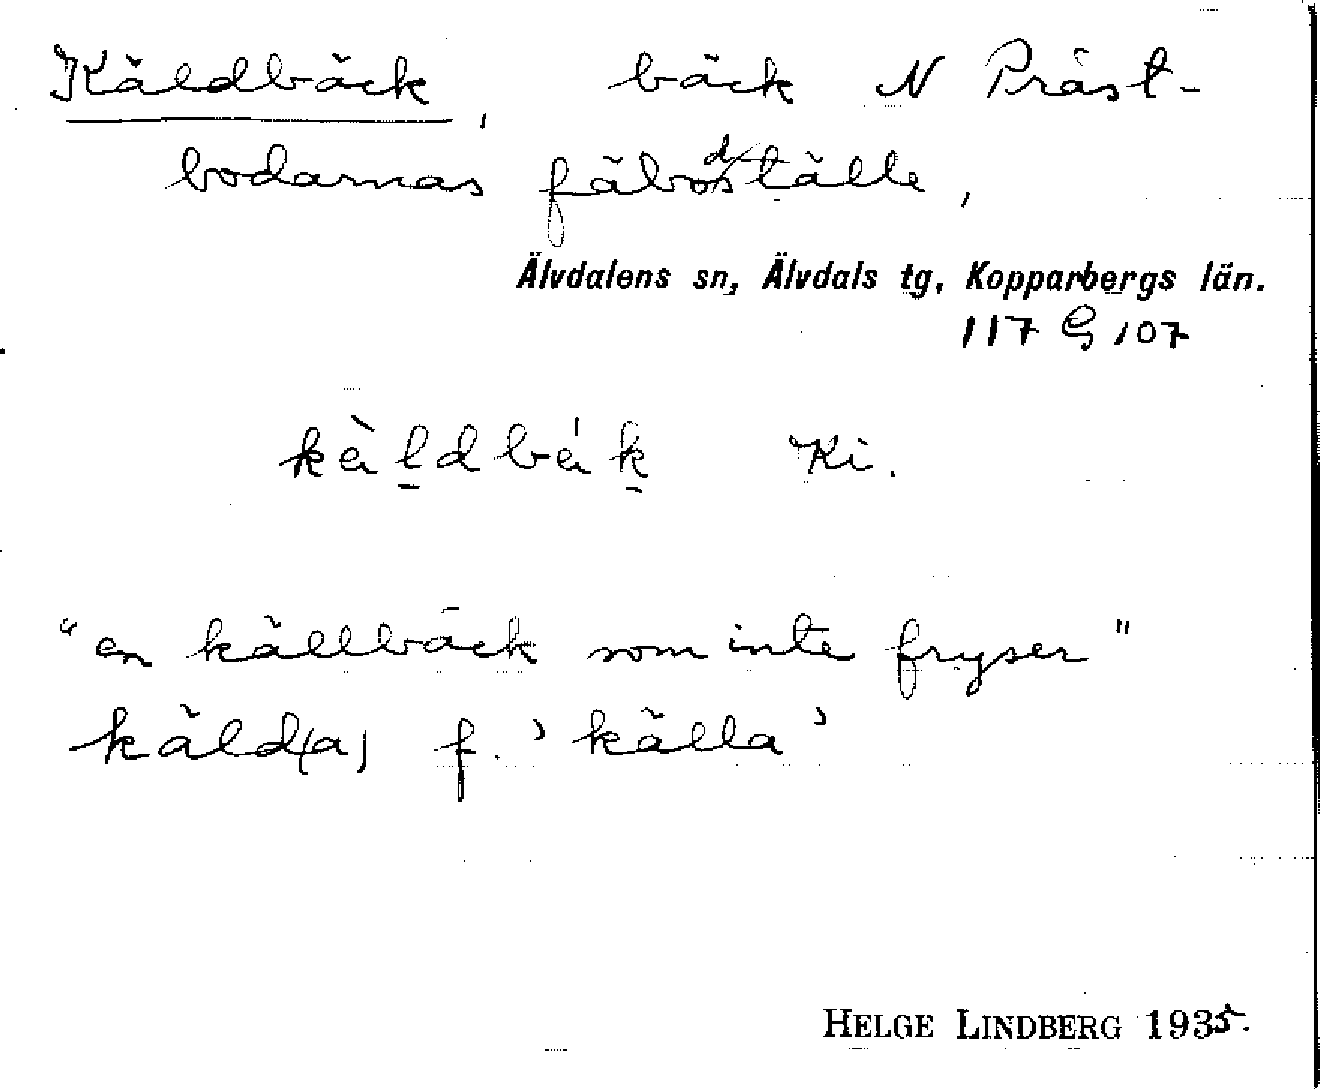 Käldbäck, bäck N Präst-
bodarnas fäbodställe,
Älvdalens sn, Älvdals tg, Kopparbergs län.
117 G 107
kä̀ldbä́k Ki.
"en källbäck som inte fryser"
käld(a) f. 'källa'
HELGE LINDBERG 1935.